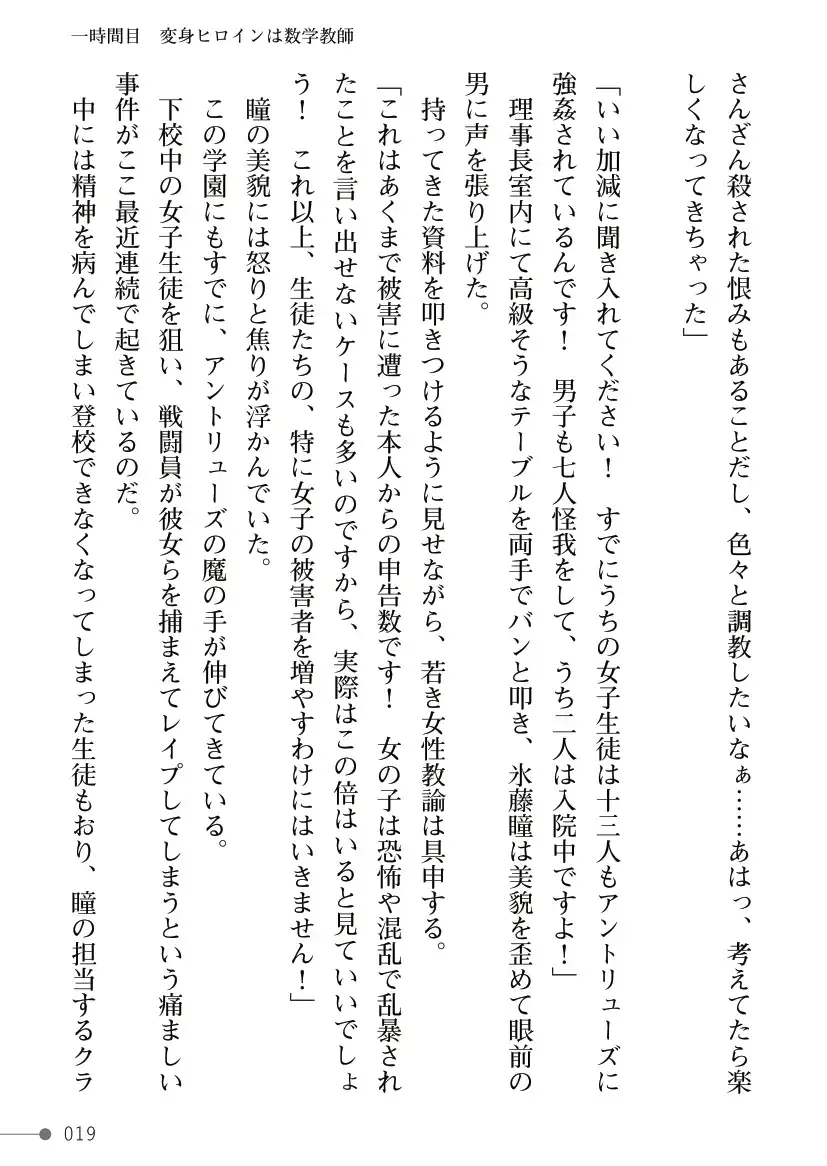 一時間目　変身ヒロインは数学教師
さんざん殺された恨みもあることだし、色々と調教したいなぁ……あはっ、考えてたら楽
しくなってきちゃった」
「いい加減に聞き入れてください！　すでにうちの女子生徒は十三人もアントリューズに
強姦されているんです！　男子も七人怪我をして、うち二人は入院中ですよ！」
　理事長室内にて高級そうなテーブルを両手でバンと叩き、氷藤瞳は美貌を歪めて眼前の
男に声を張り上げた。
　持ってきた資料を叩きつけるように見せながら、若き女性教諭は具申する。
「これはあくまで被害に遭った本人からの申告数です！　女の子は恐怖や混乱で乱暴され
たことを言い出せないケースも多いのですから、実際はこの倍はいると見ていいでしょ
う！　これ以上、生徒たちの、特に女子の被害者を増やすわけにはいきません！」
　瞳の美貌には怒りと焦りが浮かんでいた。
　この学園にもすでに、アントリューズの魔の手が伸びてきている。
　下校中の女子生徒を狙い、戦闘員が彼女らを捕まえてレイプしてしまうという痛ましい
事件がここ最近連続で起きているのだ。
　中には精神を病んでしまい登校できなくなってしまった生徒もおり、瞳の担当するクラ
019